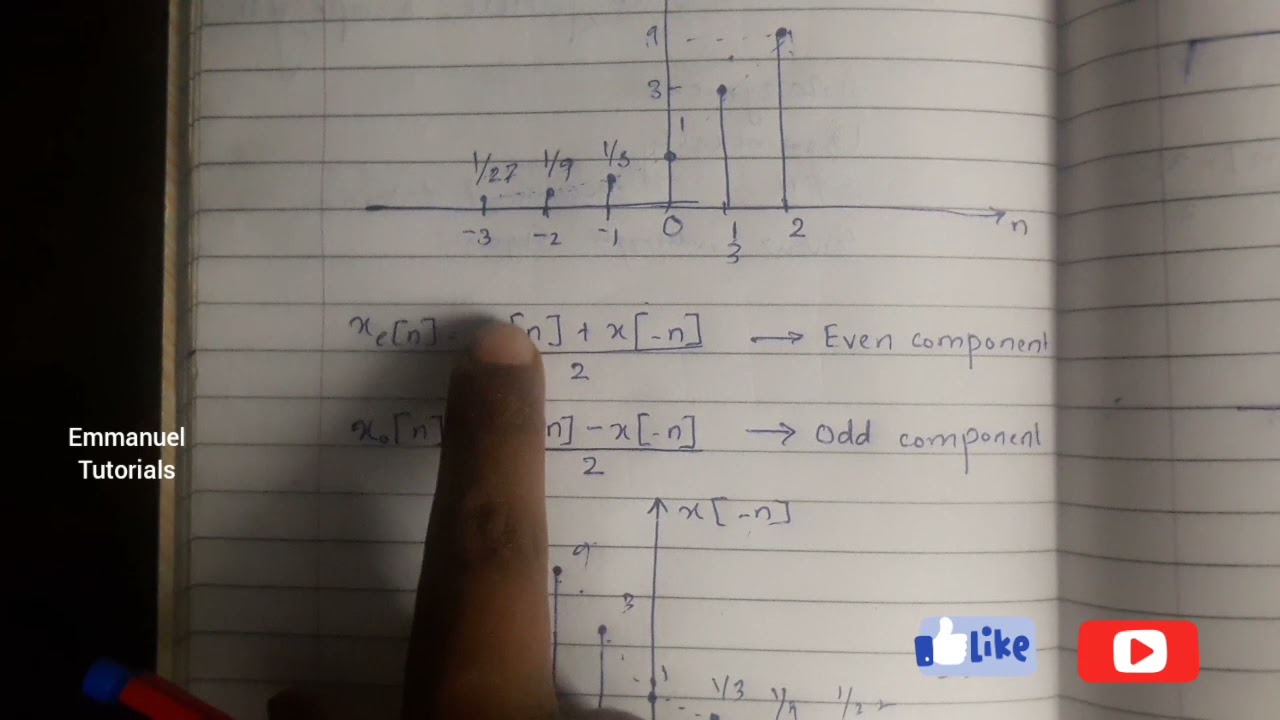 9
3
1
1/27 1/9 1/3
-3 -2 -1 0 1 2 n
3
xe[n] [n] + x[-n] → Even component
2
xo[n] n] - x[-n] → Odd component
2
x[-n]
9
3
1
1/3 1/9
Emmanuel
Tutorials
Like